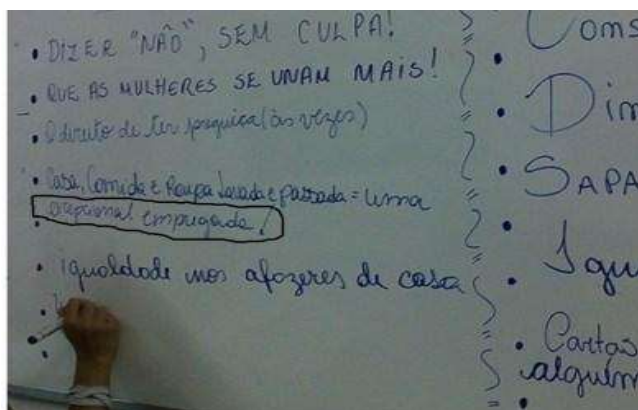 • DIZER "NÃO", SEM CULPA!
• QUE AS MULHERES SE UNAM MAIS!
• O direito de ter preguiça (às vezes)
• Casa, Comida e Roupa Lavada e passada = uma
excepcional empregada!
• igualdade nos afazeres de casa
Cons
• Dim
• SAPA
• Igu
• Cartas
alguém